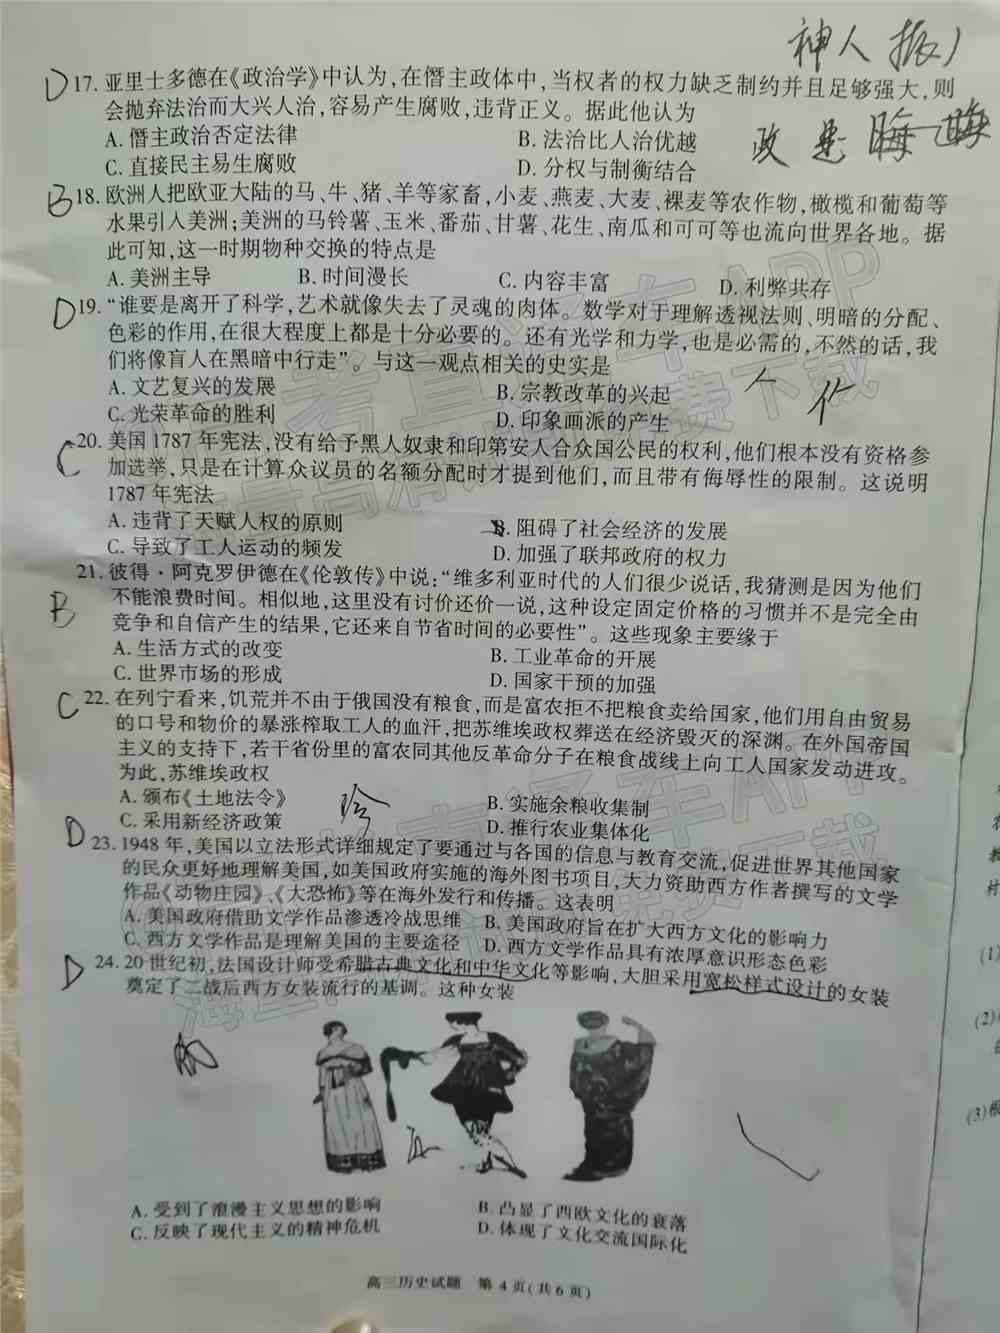 神人振
D 17. 亚里士多德在《政治学》中认为,在僭主政体中,当权者的权力缺乏制约并且足够强大,则
会抛弃法治而大兴人治,容易产生腐败,违背正义。据此他认为
A. 僭主政治否定法律 B. 法治比人治优越
C. 直接民主易生腐败 D. 分权与制衡结合
B 18. 欧洲人把欧亚大陆的马、牛、猪、羊等家畜,小麦、燕麦、大麦、裸麦等农作物,橄榄和葡萄等
水果引入美洲;美洲的马铃薯、玉米、番茄、甘薯、花生、南瓜和可可等也流向世界各地。据
此可知,这一时期物种交换的特点是
A. 美洲主导 B. 时间漫长 C. 内容丰富 D. 利弊共存
D 19. “谁要是离开了科学,艺术就像失去了灵魂的肉体。数学对于理解透视法则、明暗的分配、
色彩的作用,在很大程度上都是十分必要的。还有光学和力学,也是必需的,不然的话,我
们将像盲人在黑暗中行走”。与这一观点相关的史实是
A. 文艺复兴的发展 B. 宗教改革的兴起
C. 光荣革命的胜利 D. 印象画派的产生
C 20. 美国1787年宪法,没有给予黑人奴隶和印第安人合众国公民的权利,他们根本没有资格参
加选举,只是在计算众议员的名额分配时才提到他们,而且带有侮辱性的限制。这说明
1787年宪法
A. 违背了天赋人权的原则 B. 阻碍了社会经济的发展
C. 导致了工人运动的频发 D. 加强了联邦政府的权力
B 21. 彼得·阿克罗伊德在《伦敦传》中说:“维多利亚时代的人们很少说话,我猜测是因为他们
不能浪费时间。相似地,这里没有讨价还价一说,这种设定固定价格的习惯并不是完全由
竞争和自信产生的结果,它还来自节省时间的必要性”。这些现象主要缘于
A. 生活方式的改变 B. 工业革命的开展
C. 世界市场的形成 D. 国家干预的加强
C 22. 在列宁看来,饥荒并不由于俄国没有粮食,而是富农拒不把粮食卖给国家,他们用自由贸易
的口号和物价的暴涨榨取工人的血汗,把苏维埃政权葬送在经济毁灭的深渊。在外国帝国
主义的支持下,若干省份里的富农同其他反革命分子在粮食战线上向工人国家发动进攻。
为此,苏维埃政权
A. 颁布《土地法令》 B. 实施余粮收集制
C. 采用新经济政策 D. 推行农业集体化
D 23. 1948年,美国以立法形式详细规定了要通过与各国的信息与教育交流,促进世界其他国家
的民众更好地理解美国,如美国政府实施的海外图书项目,大力资助西方作者撰写的文学
作品《动物庄园》、《大恐怖》等在海外发行和传播。这表明
A. 美国政府借助文学作品渗透冷战思维 B. 美国政府旨在扩大西方文化的影响力
C. 西方文学作品是理解美国的主要途径 D. 西方文学作品具有浓厚意识形态色彩
D 24. 20世纪初,法国设计师受希腊古典文化和中华文化等影响,大胆采用宽松样式设计的女装
奠定了二战后西方女装流行的基调。这种女装
A. 受到了浪漫主义思想的影响 B. 凸显了西欧文化的衰落
C. 反映了现代主义的精神危机 D. 体现了文化交流国际化
高三历史试题 第4页(共6页)
(1)
(2)
(3)